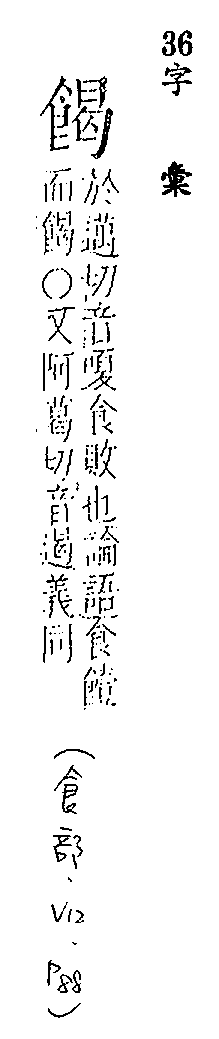 36字彙
餲
於邁切音嗄食敗也論語食饐
而餲○又阿葛切音遏義同
(食部、V12、P88)